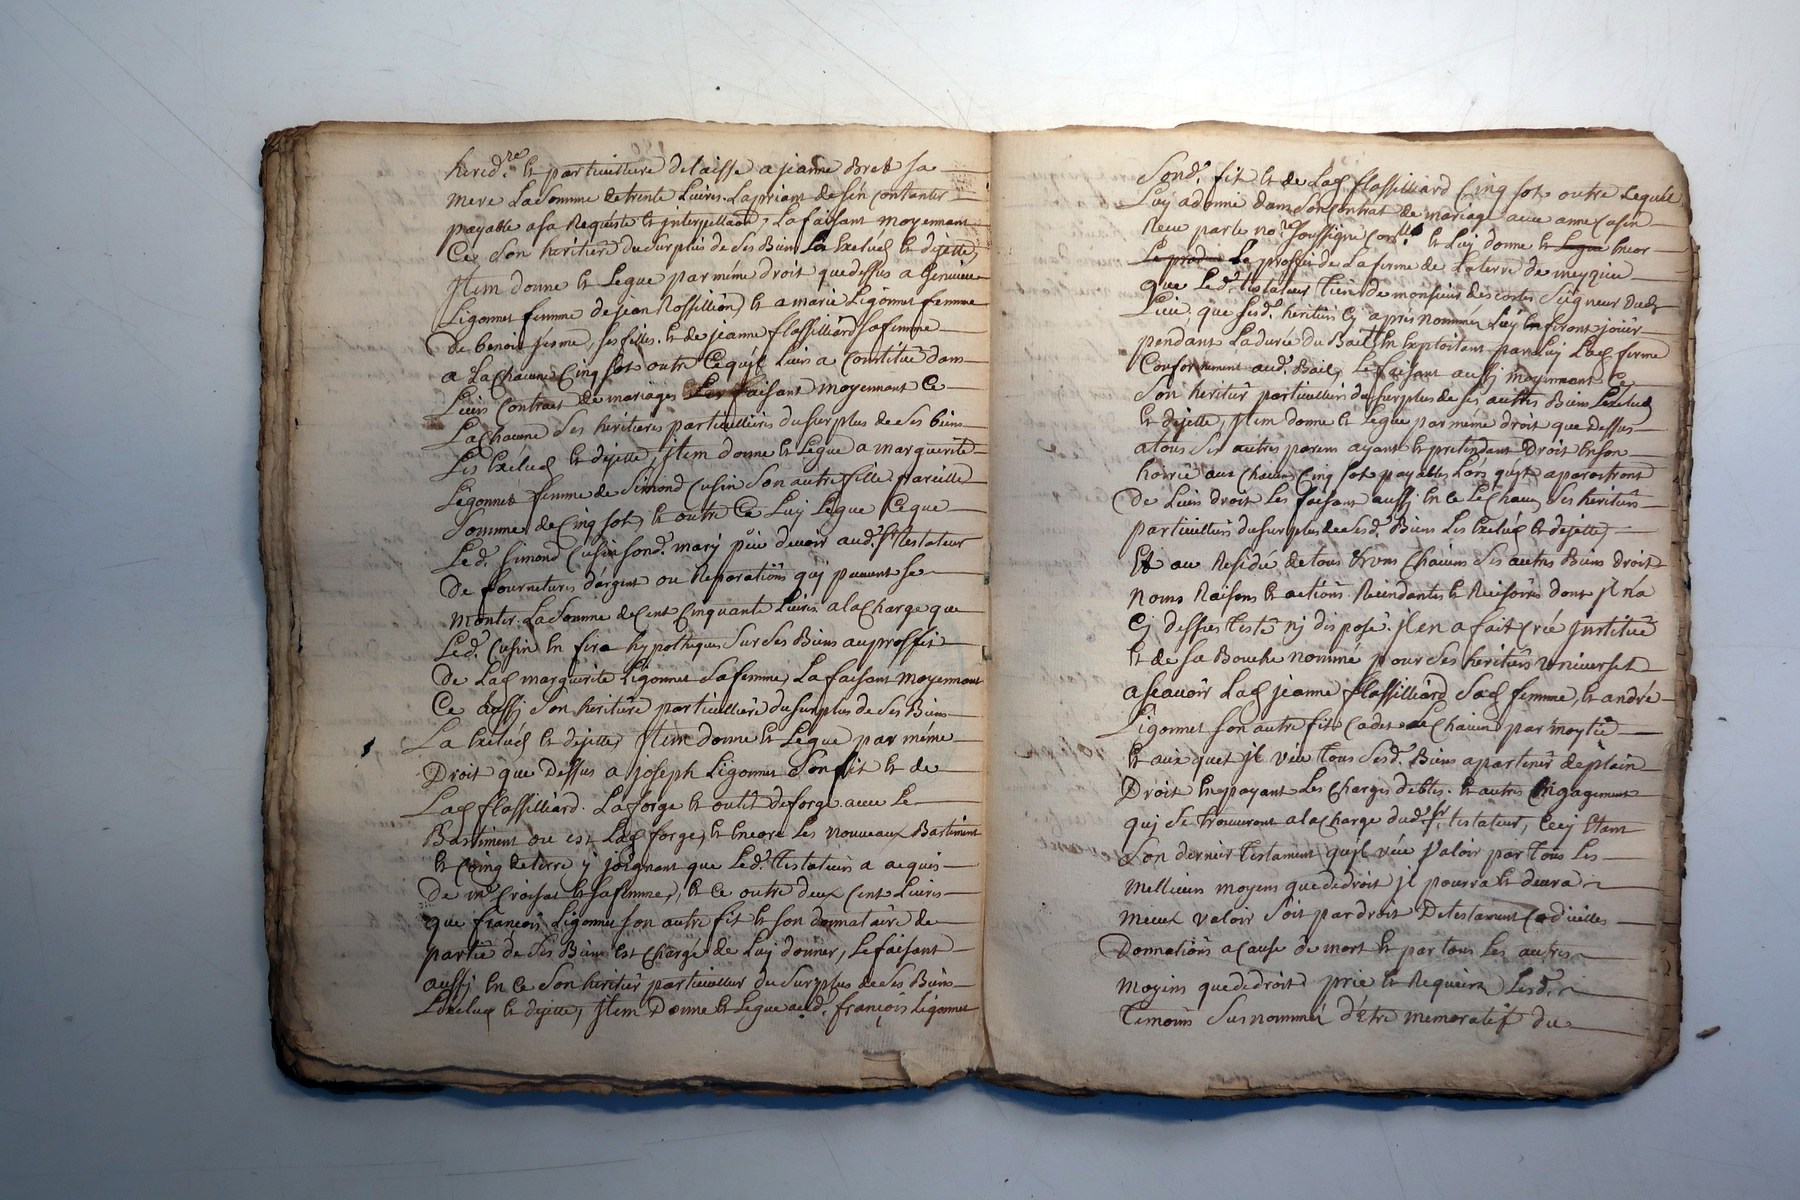 hered.re et particulliere delaisse a jeanne Bret sa
mere La Somme de trente Livres. La priant de sen contanter
payable a sa Requiste et interpellaon, La faisant moyennant
Ce Son heritiere du Surplus de Ses Biens La Exclud et dejette,
Jtem donne et Legue par méme droit que dessus a
Ligonnet femme de jean Rossillion, et a marie Ligonnet femme
de benoit ses filles, et de jeanne flassilliard sa femme
a Lachacune Cinq sols outre Ce quil Leurs a Constitué dans
Leurs Contrats de mariages Les faisant moyennant Ce
La Chacune Ses heritieres particullieres du surplus de Ses biens
Les Exclud et dejette, Jtem donne et Legue a marguerite
Ligonnet femme de Simond Cusin Son autre fille pareille
Somme de Cinq sols, et outre Ce Luy Legue Ceque
Led. Simond Cusin sond. mary peu devoir aud. Sr testateur
De fournitures d'argent ou Reparations quj peuvent se
monter La Somme de Cent Cinquante Livres a la Charge que
Led. Cusin En fera hypotheque Sur Ses Biens au proffit
De Lad marguerite Ligonnet Sa femme, La faisant moyennant
Ce aussj Son heritiere particulliere du surplus de Ses Biens
La Exclud et dejette, Jtem donne et Legue par méme
Droit que Dessus a Joseph Ligonnet Son fils et de
Lad flassilliard. La forge et outils de forge avec Le
Bastiment ou est Lad forge, et encore Les nouveaux Bastiment
et Coing de terre y joignant que Led. testateur a acquis
De mr Croisat et sa femme, et ce outre deux Cent Livres
que françois Ligonnet son autre fils et son donnataire de
partie de Ses Biens est Chargé de Luy donner, Le faisant
aussj en ce Son heritier particullier du Surplus de Ses Biens
L'exclud et dejette, Jtem Donne et Legue aud. françois Ligonnet
Sond. fils et de Lad flassilliard Cinq sols outre Le quil
Luy a donné dans Son Contrat de mariage avec anne Cusin
Receu par le no.re Soussigné et Luy donne et Legue Encor
Le Le proffit de La ferme de La terre de
que Led. testateur tien de monsieur des costes Seigneur dud
Lieu. que Sesd. heritiers Cy aprés nommés Luy en feront joüir
pendant La durée du Bail En Exploitant par Luy Lad ferme
Conformement aud. Bail, Le faisant aussj moyennant Ce
Son heritier particullier du surplus de Ses autres Biens Lexclud
et dejette, Jtem donne et Legue par méme droit que Dessus
a tous Ses autres parens ayant et pretendant Droit En son
hoirie aux Chacun Cinq sols payables Lors quil aparoistront
De Leurs droit Les faisant aussj En ce Le Chacun Ses heritiers
particulliers du Surplus de Sesd. Biens Les Exclud et dejette,
Et au Residu de tous Chacuns Ses autres Biens droit
noms Raisons et actions Recindantes et Recisoires dont Jl na
Cj dessus testé nj disposé. Jl en a fait Créé Jnstitué
et de Sa Bouche nommé pour Ses heritiers universels
a Scavoir Lad jeanne flassilliard Sad femme, et andré
Ligonnet Son autre fils Cadet Chacun par moytié
et aux quels jl veu tous Sesd. Biens apartenir de plain
Droit En payant Les Charges debtes. et autres Engagements
quj Se trouveront a la Charge dud. Sr testateur, Cecy Etant
Son dernier testament quil veu Valoir par tous Les
mellieurs moyens que de droit jl pourra et devra
mieux valoir Soit par droit De testament Codicilles
Donnations a Cause de mort et par tous les autres
moyens que de droit prie et Requiert Lesd.
temoins Susnommés d'étre memoratif du